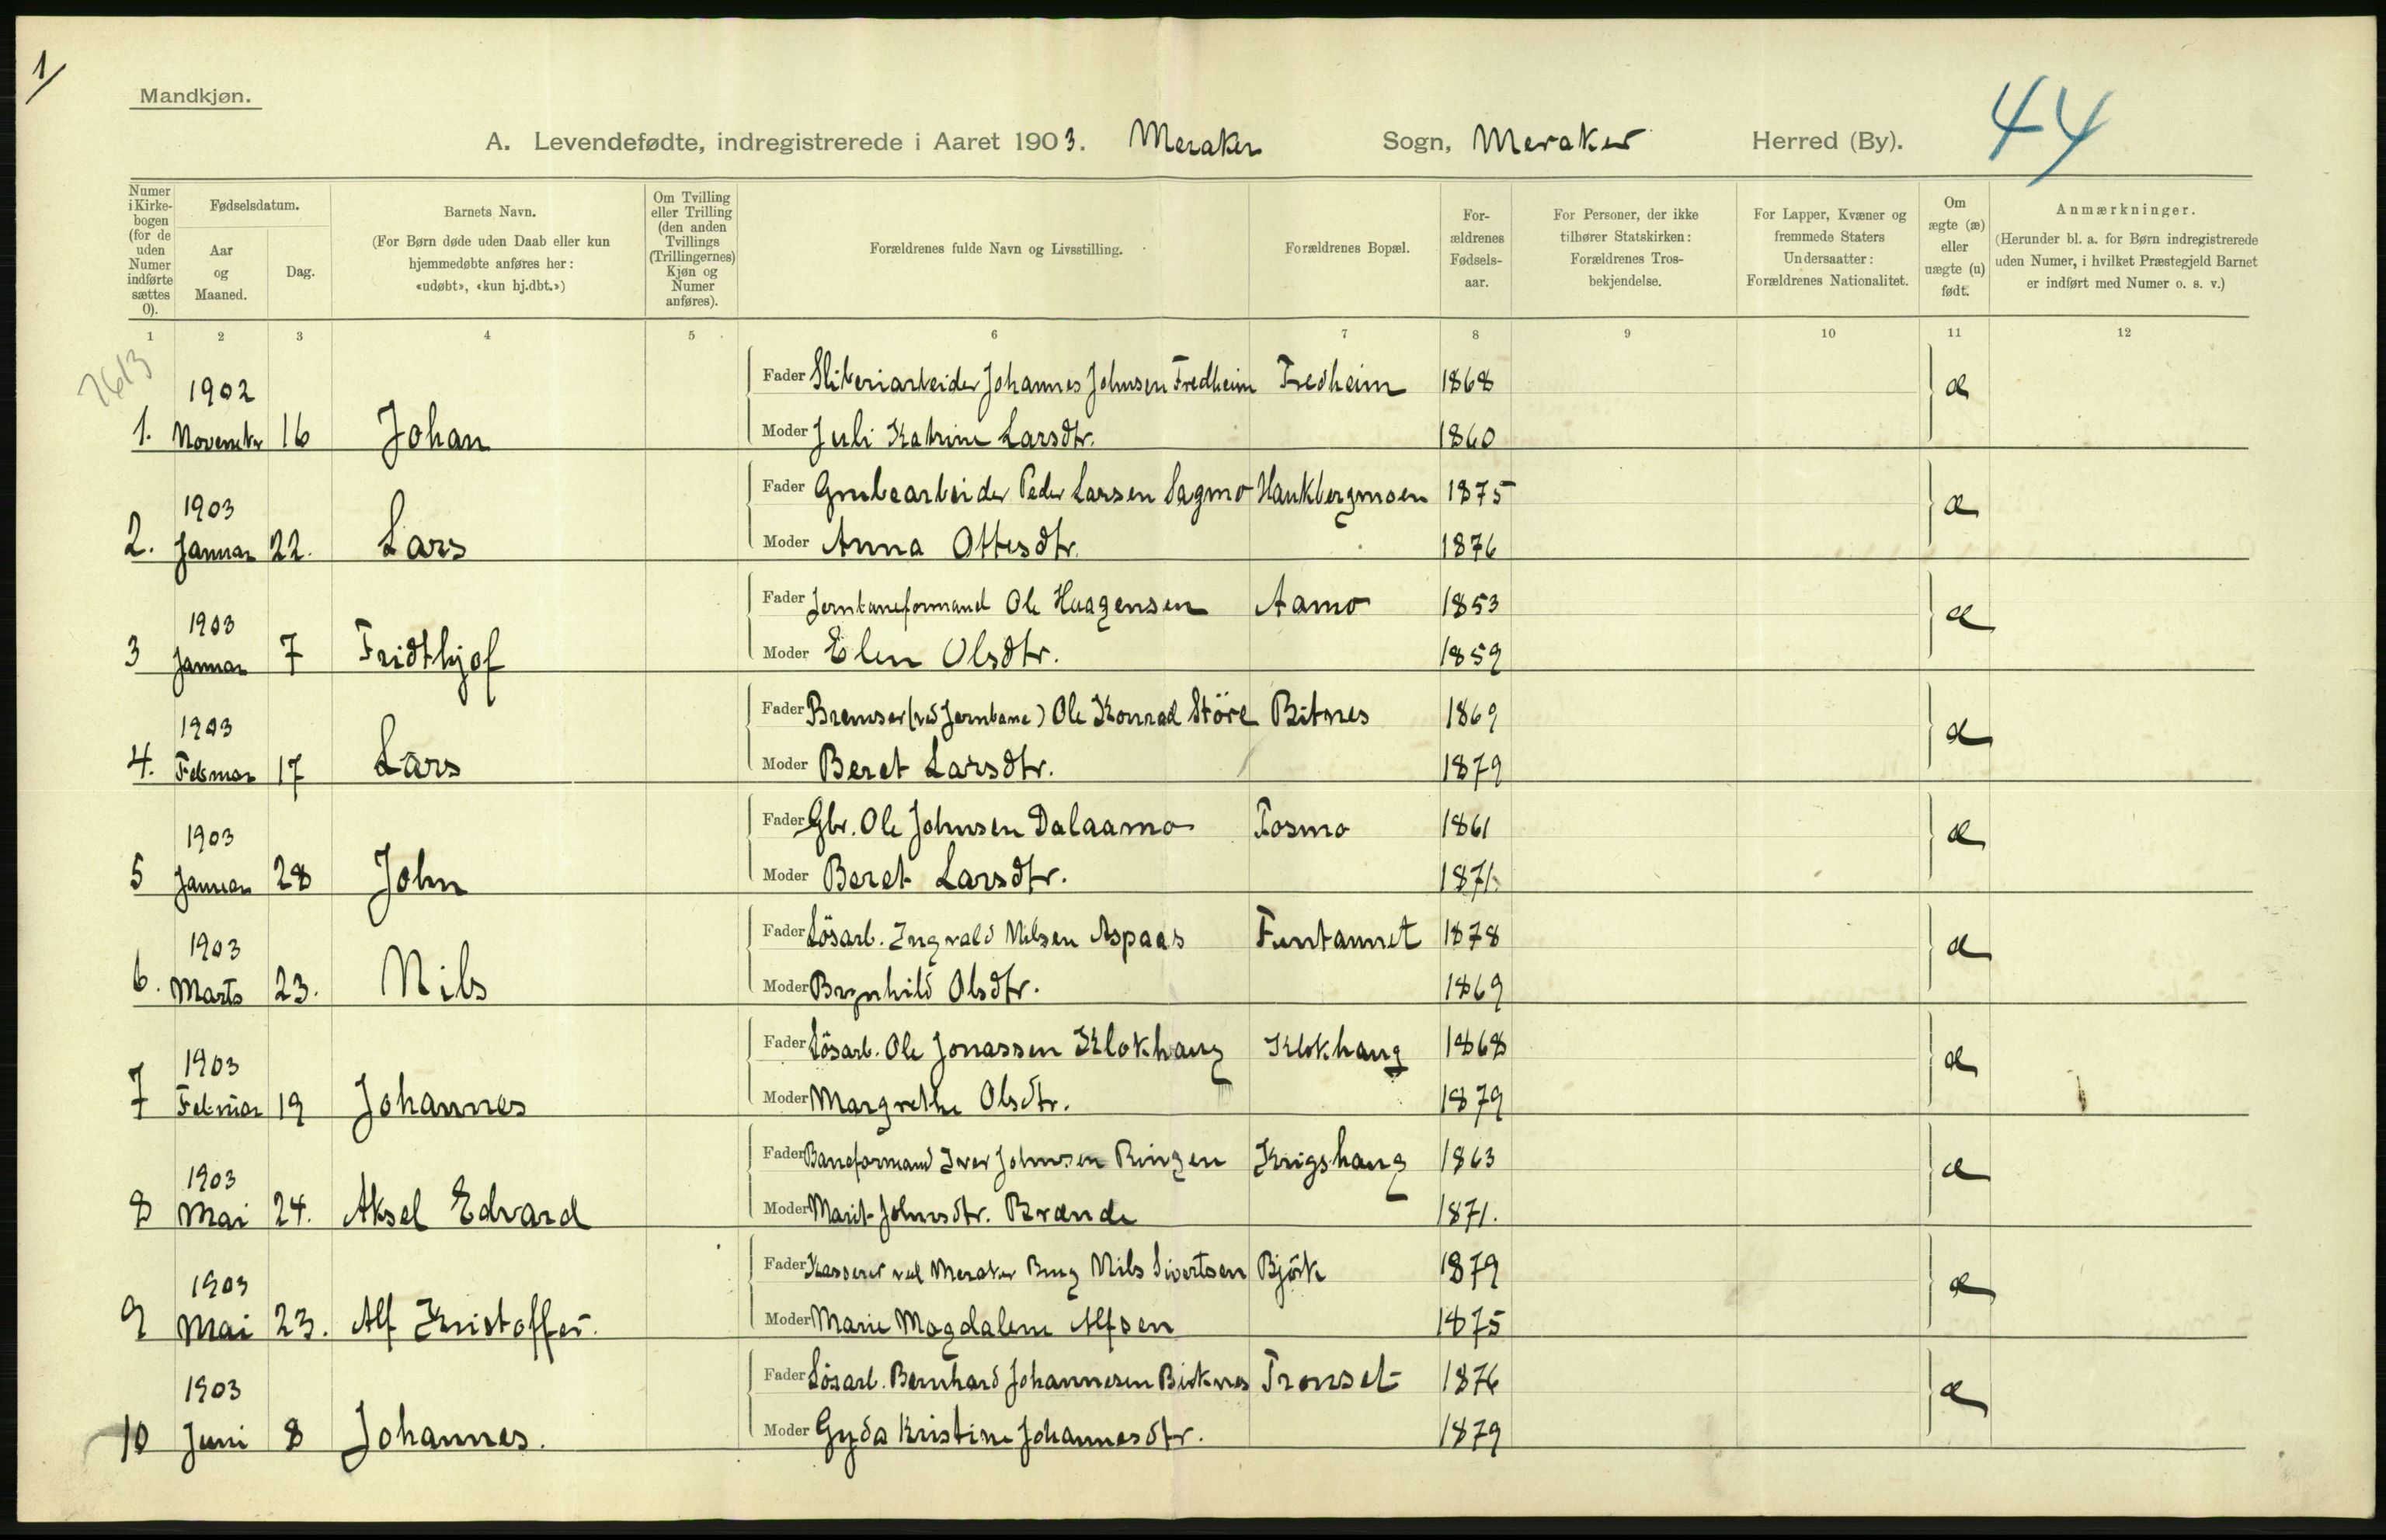 1/
Mandkjøn.
44
A. Levendefødte, indregistrerede i Aaret 1903. Meraker Sogn, Meraker Herred (By).
Numer i Kirkebogen (for de uden Numer indførte sættes 0).
Fødselsdatum.
Aar og Maaned.
Dag.
Barnets Navn.
(For Børn døde uden Daab eller kun hjemmedøbte anføres her: «udøbt», «kun hj.dbt.»)
Om Tvilling eller Trilling (den anden Tvillings (Trillingernes) Kjøn og Numer anføres).
Forældrenes fulde Navn og Livsstilling.
Forældrenes Bopæl.
Forældrenes Fødselsaar.
For Personer, der ikke tilhører Statskirken: Forældrenes Trosbekjendelse.
For Lapper, Kvæner og fremmede Staters Undersaatter: Forældrenes Nationalitet.
Om ægte (æ) eller uægte (u) født.
Anmærkninger.
(Herunder bl. a. for Børn indregistrerede uden Numer, i hvilket Præstegjeld Barnet er indført med Numer o. s. v.)
1 2 3 4 5 6 7 8 9 10 11 12
7613
1902 Fader Sliberiarbeider Johannes Johnsen Fredheim Fredheim 1868 æ
1. November 16 Johan Moder Juli Katrine Larsdtr. 1860
1903 Fader Grubearbeider Peder Larsen Sagmo Haukbergmoen 1875 æ
2. Januar 22. Lars Moder Anna Ottesdtr. 1876
1903 Fader Jernbaneformand Ole Haagensen Aamo 1853 æ
3 Januar 7 Fridthjof Moder Elen Olsdtr. 1859
1903 Fader Bremser (ved Jernbane) Ole Konrad Störe Bitnes 1869 æ
4. Februar 17 Lars Moder Beret Larsdtr. 1879
1903 Fader Gbr. Ole Johnsen Dalaamo Fosmo 1861 æ
5 Januar 28 John Moder Beret Larsdtr. 1871.
1903 Fader Lösarb. Ingvald Nilsen Aspaas Funtaunet 1878 æ
6. Marts 23. Nils Moder Brynhild Olsdtr. 1869
1903 Fader Lösarb. Ole Jonassen Klokhaug Klokhaug 1868 æ
7 Februar 19 Johannes Moder Margrethe Olsdtr. 1879
1903 Fader Baneformand Iver Johnsen Ringen Krigshaug 1863 æ
8 Mai 24. Aksel Edvard Moder Marit Johnsdtr. Brænde 1871.
1903 Fader Kasserer ved Meraker Brug Nils Sivertsen Björk 1879 æ
9 Mai 23. Alf Kristoffer. Moder Marie Magdalene Alfsen 1875
1903 Fader Lösarb. Bernhard Johannesen Bitnes Tronset 1876 æ
10 Juni 8 Johannes. Moder Gyda Kristine Johannesdtr. 1879